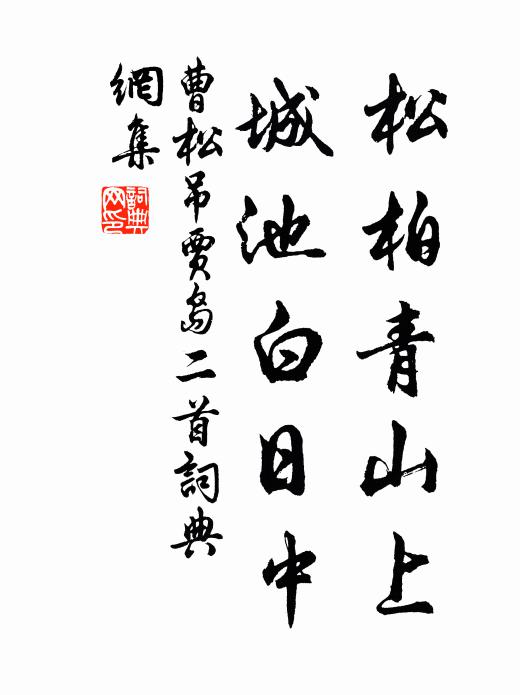 松柏青山上
城池白日中
曹松吊賈島二首詞典
網集
詞典網印